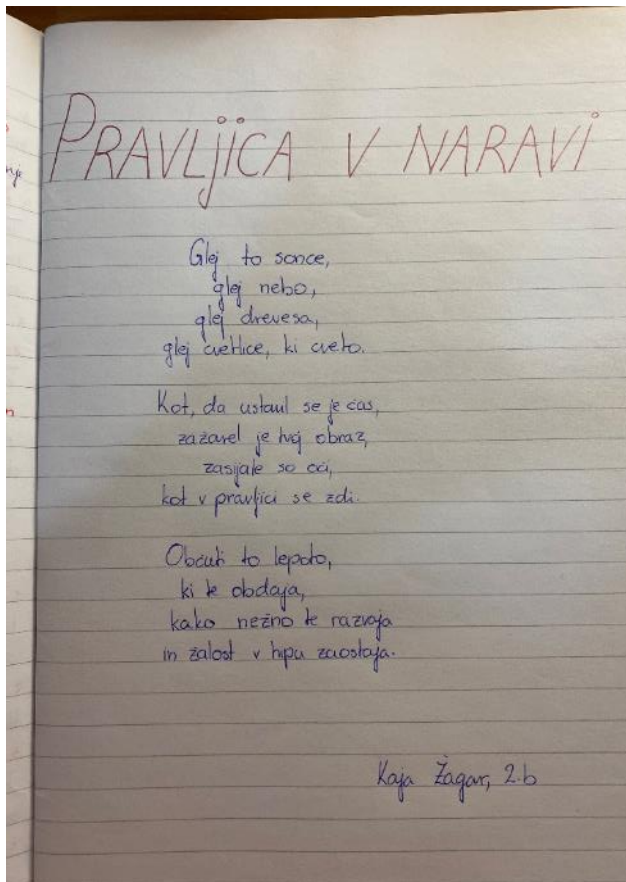 PRAVLJICA V NARAVI
Glej to sonce,
glej nebo,
glej drevesa,
glej cvetlice, ki cveto.
Kot, da ustavil se je čas,
zažarel je tvoj obraz,
zasijale so oči,
kot v pravljici se zdi.
Občuti to lepoto,
ki te obdaja,
kako nežno te razvaja
in žalost v hipu zaostaja.
Kaja Žagar, 2.b